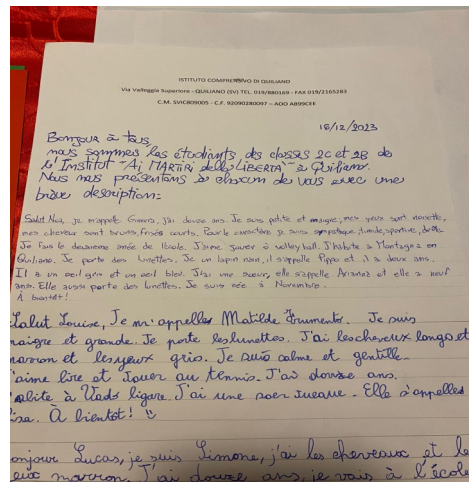 ISTITUTO COMPRENSIVO DI QUILIANO
Via Valleggia Superiore - QUILIANO (SV) TEL. 019/880169 - FAX 019/2165283
C.M. SVIC809005 - C.F. 92090280097 - AOO AB99CEE
16/12/2023
Bonjour à tous,
nous sommes les étudiants des classes 2C et 2B de
l'Institut "Ai MARTIRI della LIBERTÀ" à Quiliano.
Nous nous présentons à chacun de vous avec une
brève description:
Salut Noa, je m'appelle j'ai douze ans. Je suis petite et maigre, mes yeux sont noisette,
mes cheveux sont bruns, frisés courts. Pour le caractère je suis sympatique, timide, sportive, drôle.
Je fais le deuxième année de l'école. J'aime jouer à volleyball. J'habite à Montagna en
Quiliano. Je porte des lunettes. J'ai un lapin nain, il s'appelle Pippo et il a deux ans.
Il a un oeil gris et un oeil bleu. J'ai une soeur, elle s'appelle Arianna et elle a neuf
ans. Elle aussi porte des lunettes. Je suis née à Novembre.
À bientôt!
Salut Louise, Je m'appelles Matilde Frumento. Je suis
maigre et grande. Je porte les lunettes. J'ai les cheveux longs et
marron et les yeux gris. Je suis calme et gentille.
J'aime lire et Jouer au tennis. J'ai douze ans.
à Vado ligure. J'ai une soer Elle s'appelles
À bientôt!
Bonjour Lucas, je suis Simone, j'ai les cheveaux et le
yeux marron. J'ai douze ans, je vais à l'école